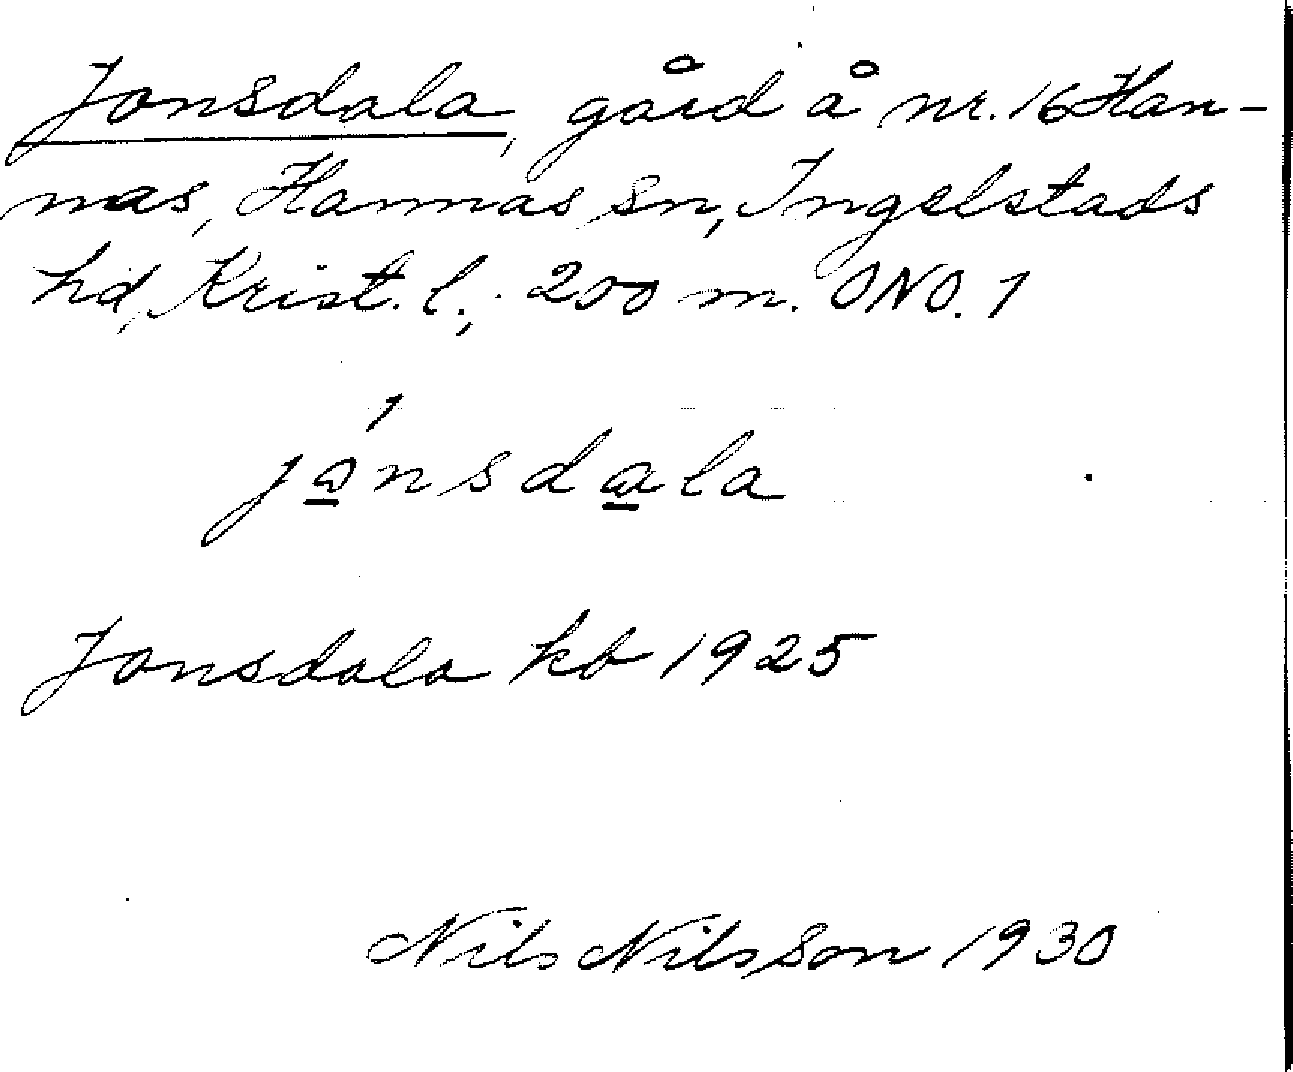 Jonsdala, gård å nr. 16 Han-
nas, Hannas sn, Ingelstads
hd, Krist. l., 200 m. ONO. 1
jånsdala
Jonsdala kb 1925
Nils Nilsson 1930